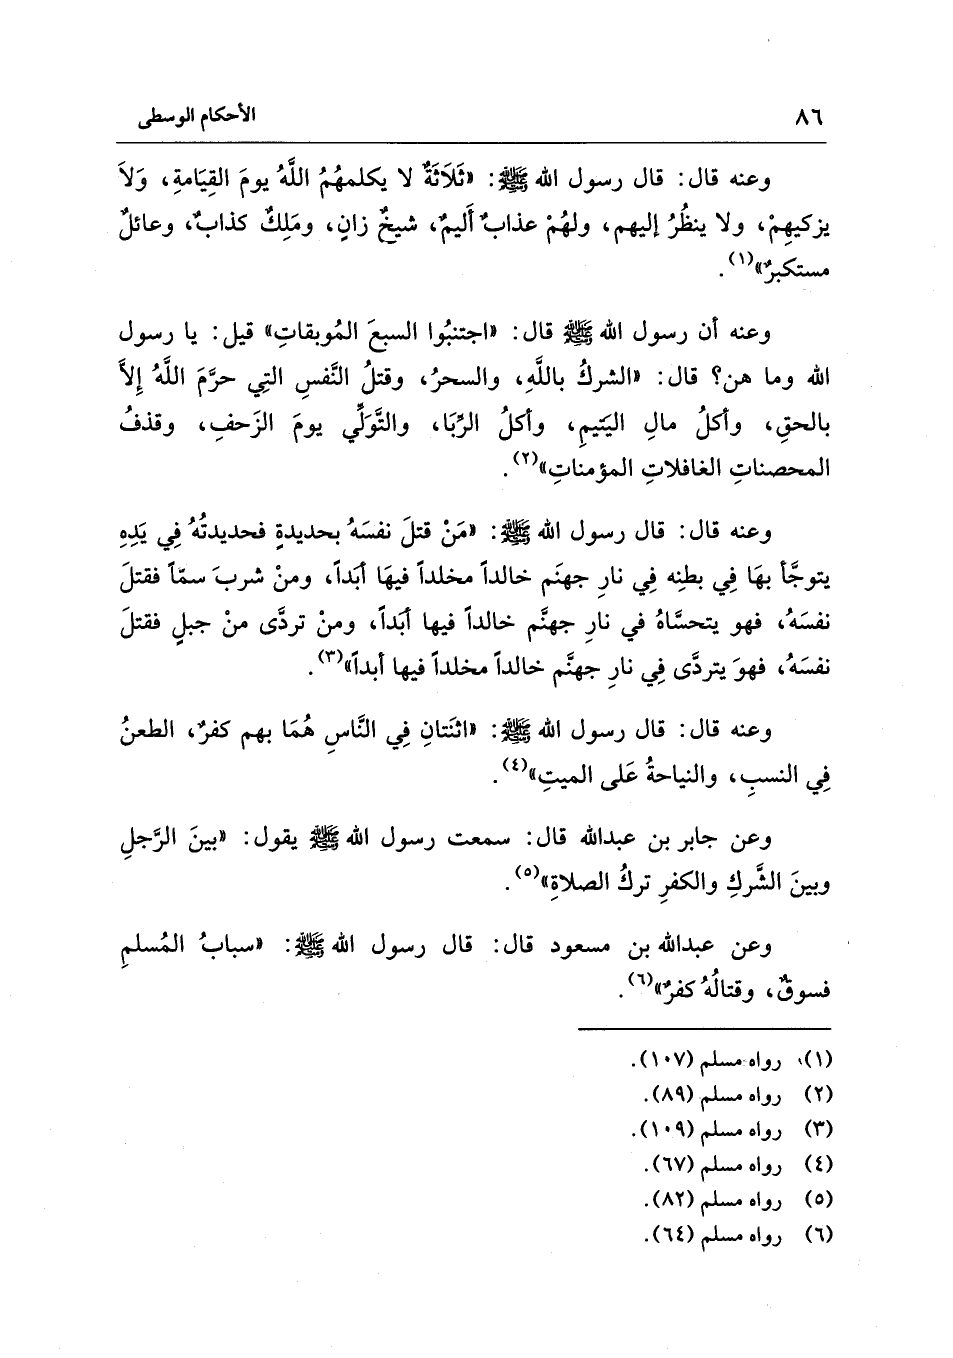 ٨٦
الأحكام الوسطى
وعنه قال: قال رسول الله ﷺ: «ثَلَاثَةٌ لا يكلمهُمُ اللَّهُ يومَ القِيَامةِ، وَلاَ
يزكيهِمْ، ولا ينظُرُ إليهم، ولهُمْ عذابٌ أَليمٌ، شيخٌ زانٍ، ومَلِكٌ كذابٌ، وعائلٌ
مستكبرٌ»(١).
وعنه أن رسول الله ﷺ قال: «اجتنبُوا السبعَ المُوبقاتِ» قيل: يا رسول
الله وما هن؟ قال: «الشركُ باللَّهِ، والسحرُ، وقتلُ النَّفسِ التِي حرَّمَ اللَّهُ إلاَّ
بالحقِ، وأكلُ مالِ اليَتيمِ، وأكلُ الرِّبَا، والتَّوَلِّي يومَ الزَحفِ، وقذفُ
المحصناتِ الغافلاتِ المؤمناتِ»(٢).
وعنه قال: قال رسول الله ﷺ: «مَنْ قتلَ نفسَهُ بحديدةٍ فحديدتُهُ فِي يَدِهِ
يتوجَّأ بهَا فِي بطنِه فِي نارِ جهنَم خالداً مخلداً فيهَا أبَداً، ومنْ شربَ سمّاً فقتلَ
نفسَهُ، فهو يتحسَّاهُ في نارِ جهنَّم خالداً فيها أبَداً، ومنْ تردَّى منْ جبلٍ فقتلَ
نفسَهُ، فهوَ يتردَّى فِي نارِ جهنَّم خالداً مخلداً فيها أبداً»(٣).
وعنه قال: قال رسول الله ﷺ: «اثنَتانِ فِي النَّاسِ هُمَا بهم كفرٌ، الطعنُ
فِي النسبِ، والنياحةُ عَلى الميتِ»(٤).
وعن جابر بن عبدالله قال: سمعت رسول الله ﷺ يقول: «بينَ الرَّجلِ
وبينَ الشَّركِ والكفرِ تركُ الصلاةِ»(٥).
وعن عبدالله بن مسعود قال: قال رسول الله ﷺ: «سبابُ المُسلمِ
فسوقٌ، وقتالُهُ كفرٌ»(٦).
(١) رواه مسلم (١٠٧).
(٢) رواه مسلم (٨٩).
(٣) رواه مسلم (١٠٩).
(٤) رواه مسلم (٦٧).
(٥) رواه مسلم (٨٢).
(٦) رواه مسلم (٦٤).